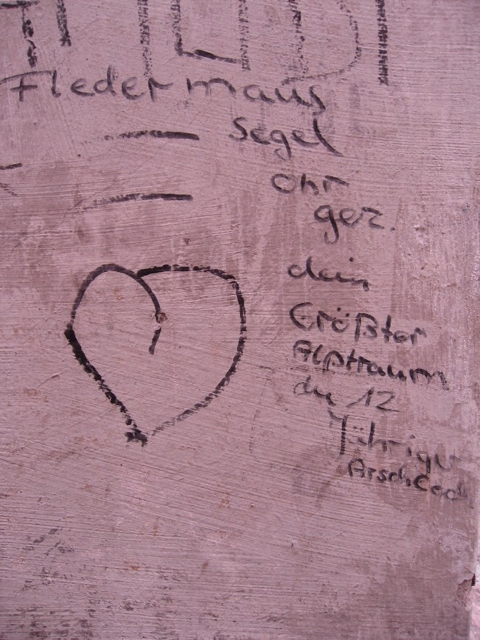 Fledermaus
Segel
ohr
gez.
dein
Größter
Alptraum
du 12
Jähriger
Arschloch